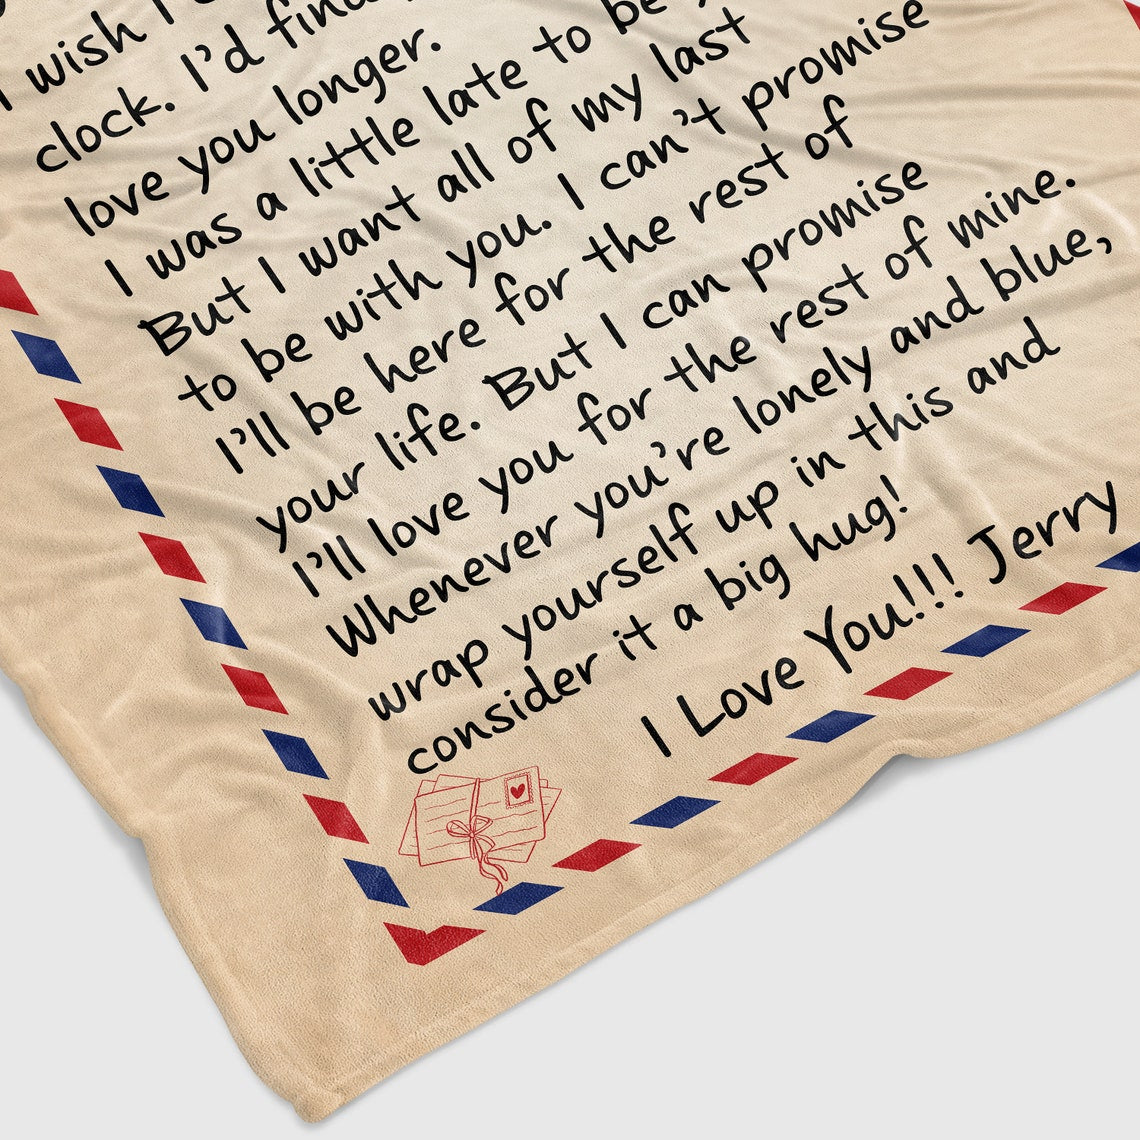 I wish I
clock. I'd find
love you longer.
I was a little late to be
But I want all of my last
to be with you. I can't promise
I'll be here for the rest of
your life. But I can promise
I'll love you for the rest of mine.
Whenever you're lonely and blue,
wrap yourself up in this and
consider it a big hug!
I Love You!!! Jerry